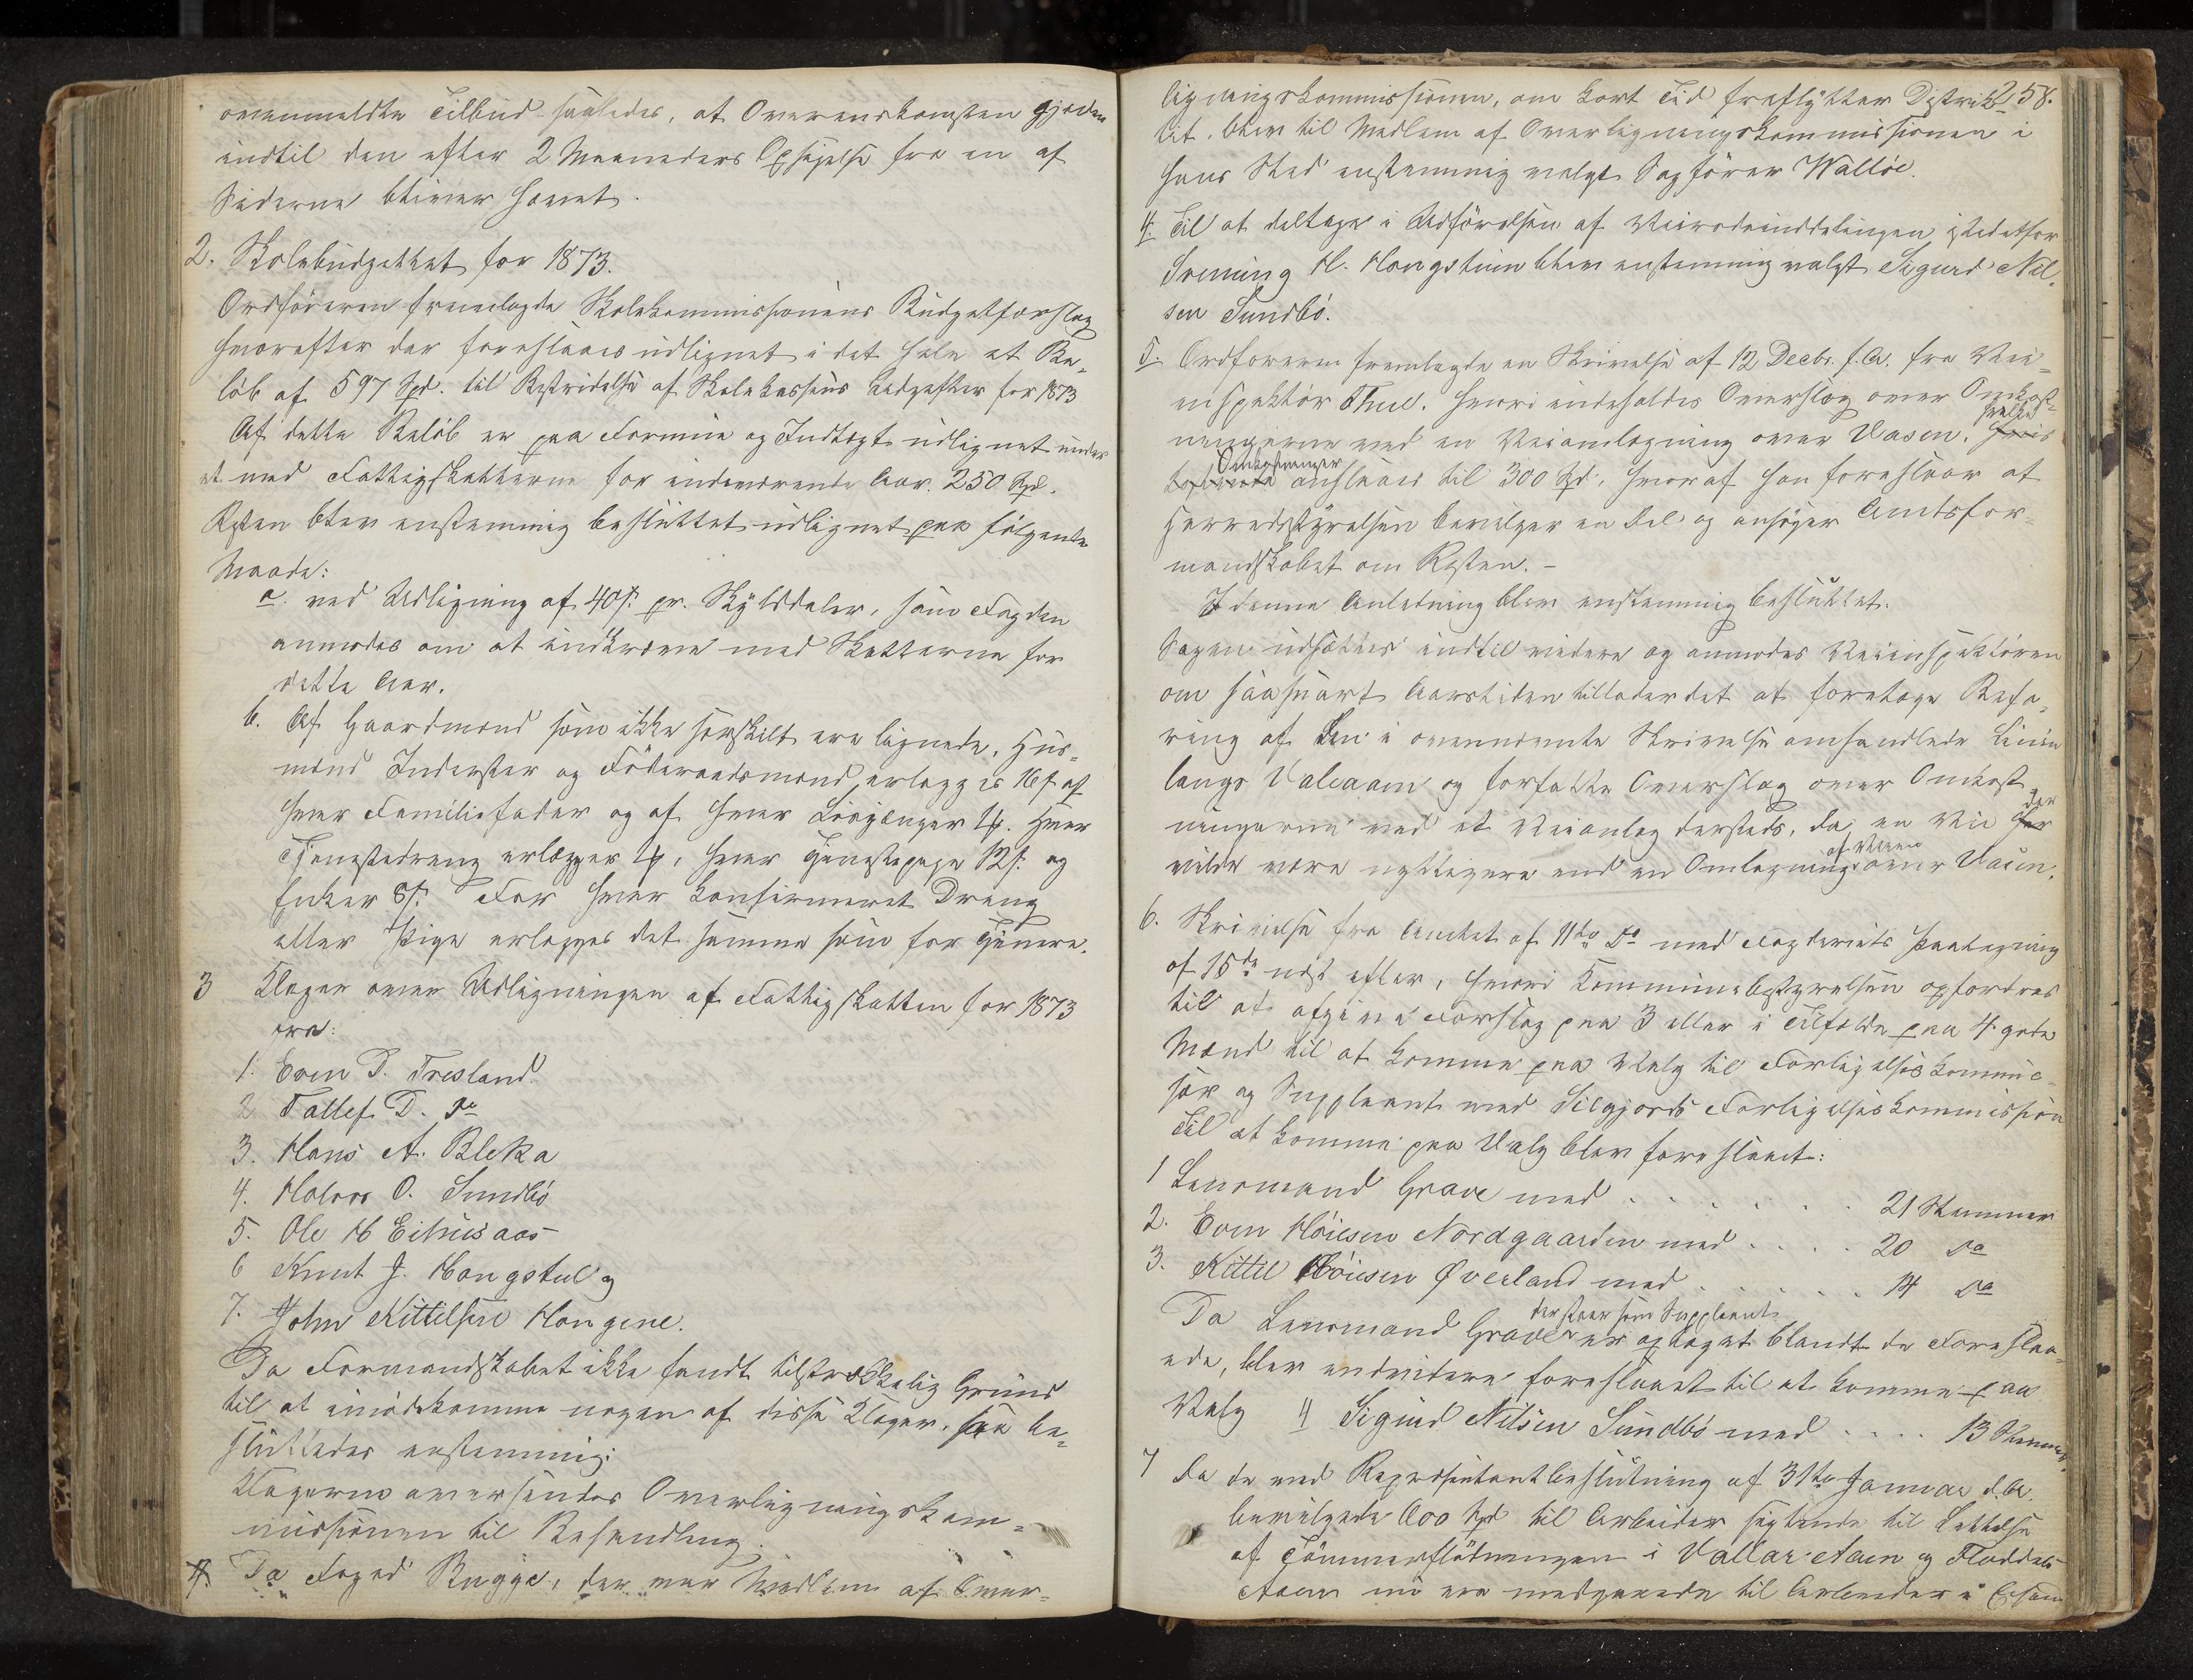 ovenmeldte Tilbud saaledes, at Overenskomsten gjælder
indtil den efter 2 Maaneders Opsigelse fra en af
Siderne bliver hævet.
2. Skolebudgettet for 1873.
Ordføreren fremlagde Skolekommissionens Budgetforslag
hvorefter der foreslaaes udlignet i det hele et Be-
løb af 597 Spd. til Bestridelse af Skolekassens Udgifter for 1873
Af dette Beløb er paa Formue og Indtægt udlignet under
et med Fattigskatterne for indeværende Aar 250 Spd.
Resten blev enstemmig besluttet udlignet paa følgende
Maade:
a. ved Udligning af 40 s. pr. Skylddaler, som Fogden
anmodes om at indkræve med Skatterne for
dette Aar.
b. Af Gaardmænd som ikke særskilt ere lignede, Hus-
mænd Inderster og Føderaadsmænd erlægges 16 s. af
hver Familiefader og af hver Løsgænger . Hver
Tjenestedreng erlægger , hver Tjenestepige 12 s. og
Enker 8 s. For hver konfirmeret Dreng
eller Pige erlægges det samme som for Tjenere.
3 Klager over Udligningen af Fattigskatten for 1873
fra:
1. Even D. Tresland.
2 Tallef D. do
3. Hans A. Bleka
4. Halvor O. Sundbö
5. Ole H Eihusaas
6 Knut J. Haugstul og
7. John Kittilsen Haugene.
Da Formandskabet ikke fandt tilstrækkelig Grund
til at imødekomme nogen af disse Klager, saa be-
sluttedes enstemmig:
Klagerne oversendes Overligningskom-
missionen til Behandling.
4. Da Foged Bugge, der var Medlem af Over-
258.
ligningskommissionen, om kort Tid fraflytter Distrik-
tet, blev til Medlem af Overligningskommissionen i
hans Sted enstemmig valgt Sagfører Wallöe.
4. Til at deltage i Udførelsen af Veirodeinddelingen istedetfor
Svenung H. Haugstuen blev enstemmig valgt Sigurd Nil-
sen Sundbö.
5. Ordføreren fremlagde en Skrivelse af 12 Decbr. f. A. fra Vei-
inspektör Thue, hvori indeholdes Overslag over Omkost-
ningerne ved en Veiomlægning over Vasen, hvilke
Omkostninger anslaaes til 300 Spd, hvoraf han foreslaar at
Herredsstyrelsen bevilger en Del og ansøger Amtsfor-
mandskabet om Resten. -
I denne Anledning blev enstemmig besluttet:
Sagen udsættes indtil videre og anmodes Veiinspektøren
om saasnart Aarstiden tillader det at foretage Befa-
ring af den i ovennævnte Skrivelse omhandlede Linie
langs Valeaaen og forfatte Overslag over Omkost-
ningerne ved et Veianlæg dersteds, da en Vei der
vilde være nyttigere end en Omlægning af Veien over Vasen.
6. Skrivelse fra Amtet af 11te do med Fogderiets Paategning
af 15de næst efter, hvori Kommunebestyrelsen opfordres
til at afgive Forslag paa 3 eller i Tilfælde paa 4 gode
Mænd til at komme paa Valg til Forligelseskommis-
sær og Suppleant ved Silgjords Forligelseskommission
Til at komme paa Valg blev foreslaaet:
1 Lensmand Grave med . . . . . . 21 Stemmer
2. Even Höiesen Nordgaarden med . . . . 20 do
3. Kittil Höiesen Øverland med . . . . . 14 do
Da Lensmand Grave der staar som Suppleant er optaget blandt de Foreslaa-
ede, blev endvidere foreslaaet til at komme paa
Valg 4 Sigurd Nilsen Sundbö med . . . . 13 Stemmer.
7 Da de ved Repræsentantbeslutning af 31te Januar d. A.
bevilgede 600 Spd til Arbeider sigtende til Lettelse
af Tømmerflødningen i Vallar-Aaen og Fladdals
Aaen nu ere medgaaede til Arbeider i